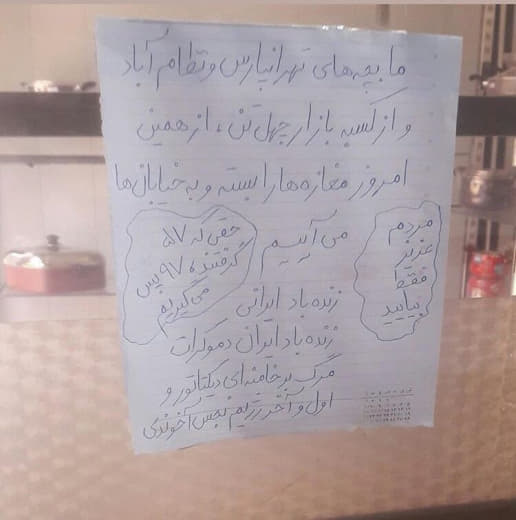 ما بچه‌های تهرانپارس و نظام آباد
و از کسبه بازار چهل تن ، از همین
امروز مغازه‌ها را بسته و به خیابان‌ها
می‌آییم
مردم
عزیز
فقط
بیایید
حقی که ۵۷
گرفتند ۹۷ پس
می‌گیریم
زنده باد ایرانی
زنده باد ایران دموکرات
مرگ بر خامنه‌ای دیکتاتور و
اول و آخر رژیم نجس آخوندی